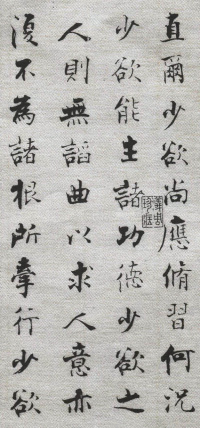 直爾少欲尚應脩習何況
少欲能生諸功德少欲之
人則無諂曲以求人意亦
復不為諸根所牽行少欲